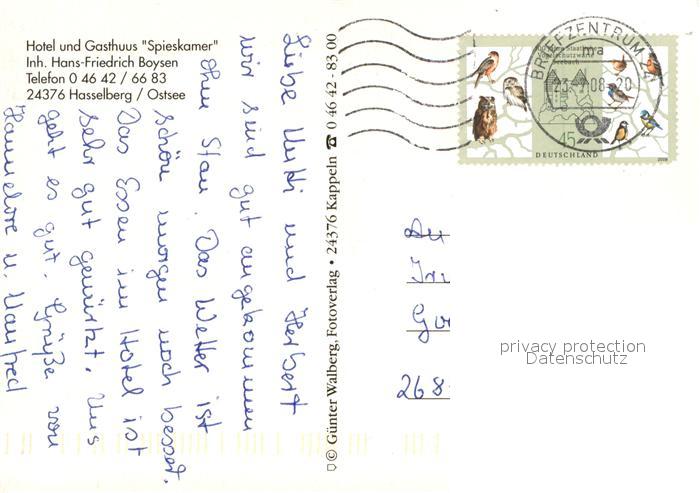 Hotel und Gasthuus "Spieskamer"
Inh. Hans-Friedrich Boysen
Telefon 0 46 42 / 66 83
24376 Hasselberg / Ostsee
Liebe Utti und Herbert
wir sind gut angekommen
ohne Stau. Das Wetter ist
schön morgen noch besser.
Das Essen im Hotel ist
sehr gut gewürzt. Uns
geht es gut. Grüße von
Hannelore u. Manfred
© Günter Walberg, Fotoverlag • 24376 Kappeln ☎ 0 46 42 - 83 00
100 Jahre Staatliche
Vogelschutzwarte
Seebach
45
DEUTSCHLAND
2008
BRIEFZENTRUM 24
ma
23. .08 - 20
268
privacy protection
Datenschutz